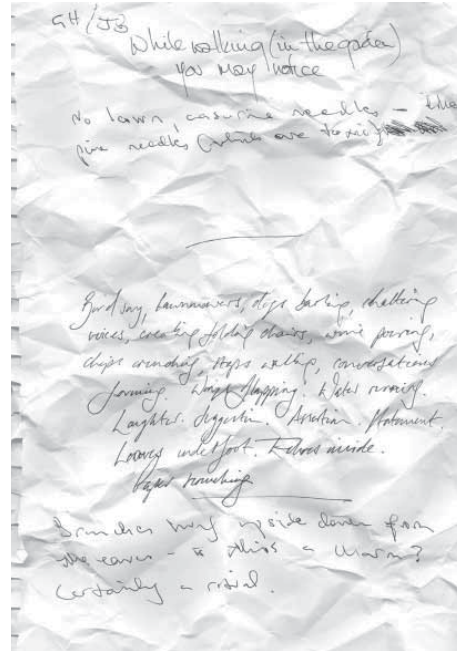 GH/JB
While walking (in the garden)
you may notice
No lawn, casurine needles –
pine needles (which are toxic)
Birdsong, lawnmowers, dogs barking, chattering
voices, creaking folding chairs, wine pouring,
chips crunching, steps walking, conversations
forming. Wings flapping. Water running.
Laughter. Suggestion. Assertion. Statement.
Leaves underfoot. Echoes inside.
Paper crunching
Branches hung upside down from
the eaves – is this a charm?
Certainly a ritual.